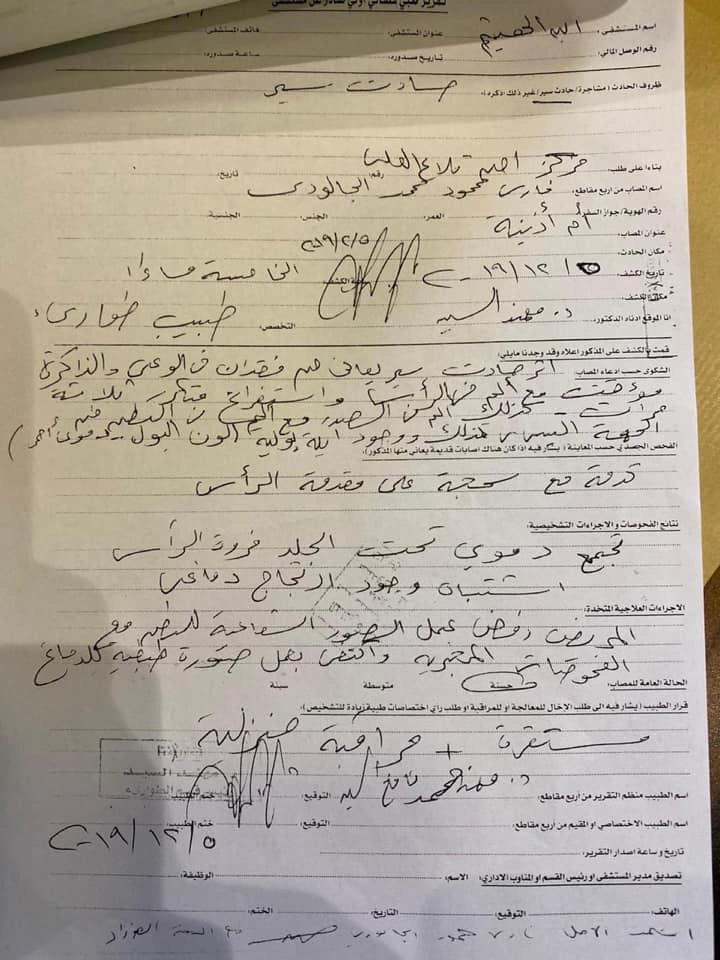 تقرير طبي قضائي أولي صادر عن مستشفى
اسم المستشفى: عنوان المستشفى: هاتف المستشفى:
رقم الوصل المالي: تاريخ صدوره: ساعة صدوره:
ظروف الحادث (مشاجرة/ حادث سير/ غير ذلك اذكره): حادث سير
بناءا على طلب: مركز امن تلاع العلي رقم: تاريخ:
اسم المصاب من أربع مقاطع: فارس محمود محمد الجالودي
رقم الهوية/ جواز السفر: العمر: الجنس: الجنسية:
عنوان المصاب: أم أذينة
مكان الحادث: ٢٠١٩/١٢/٥
تاريخ الكشف: ٢٠١٩/١٢/٥ ساعة الكشف: الخامسة مساءا
مكان الكشف:
انا الموقع ادناه الدكتور: د. مهند السيد التخصص: طبيب طوارىء
قمت بالكشف على المذكور اعلاه وقد وجدنا مايلي:
الشكوى حسب ادعاء المصاب: اثر حادث سير يعاني من فقدان في الوعي والذاكرة
مؤقت مع ألم في الرأس واستفراغ متكرر ثلاثة
مرات - كذلك ألم في الصدر مع ألم في البطن من
الجهة اليسرى كذلك ووجود البول لون البول دموي أحمر)
الفحص الجسدي حسب المعاينة (يشار فيه اذا كان هناك اصابات قديمة يعاني منها المذكور):
كدمة مع سحجة على مقدمة الرأس
نتائج الفحوصات والاجراءات التشخيصية:
تجمع دموي تحت الجلد فروة الرأس
اشتباه وجود ارتجاج دماغي
الاجراءات العلاجية المتخذة:
المريض رفض عمل الصور الشعاعية للبطن مع
الفحوصات المخبرية واكتفى بعمل صورة طبقية للدماغ
الحالة العامة للمصاب: حسنة متوسطة سيئة
قرار الطبيب (يشار فيه الى طلب الادخال للمعالجة او للمراقبة او طلب راي اختصاصات طبية زيادة للتشخيص):
مستقرة + مراقبة منزلية
اسم الطبيب منظم التقرير من أربع مقاطع: د. مهند السيد التوقيع: ختم الطبيب:
اسم الطبيب الاختصاصي او المقيم من أربع مقاطع: التوقيع: ختم الطبيب:
تاريخ وساعة اصدار التقرير: ٢٠١٩/١٢/٥
تصديق مدير المستشفى او رئيس القسم او المناوب الاداري: الاسم: الوظيفة:
الهاتف: التوقيع: التاريخ: الختم:
استلمت الاصل فارس محمود الجالودي